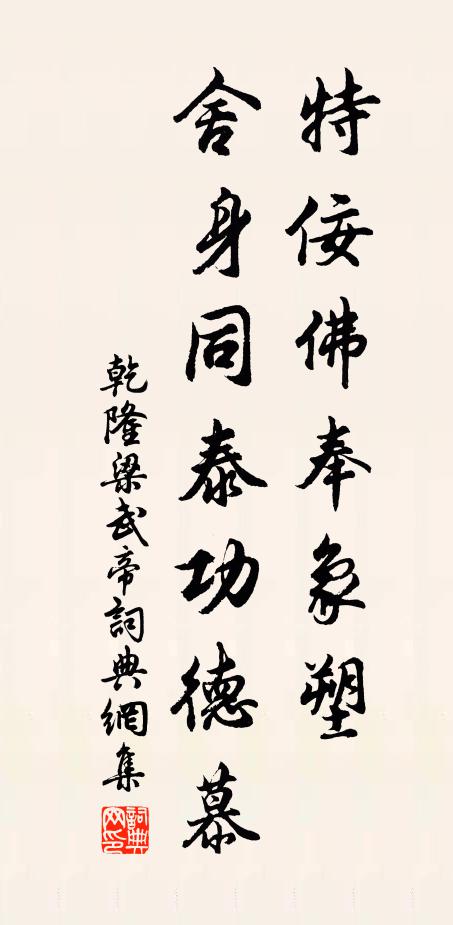 特佞佛奉象塑
舍身同泰功德慕
乾隆梁武帝詞典網集
詞典網印